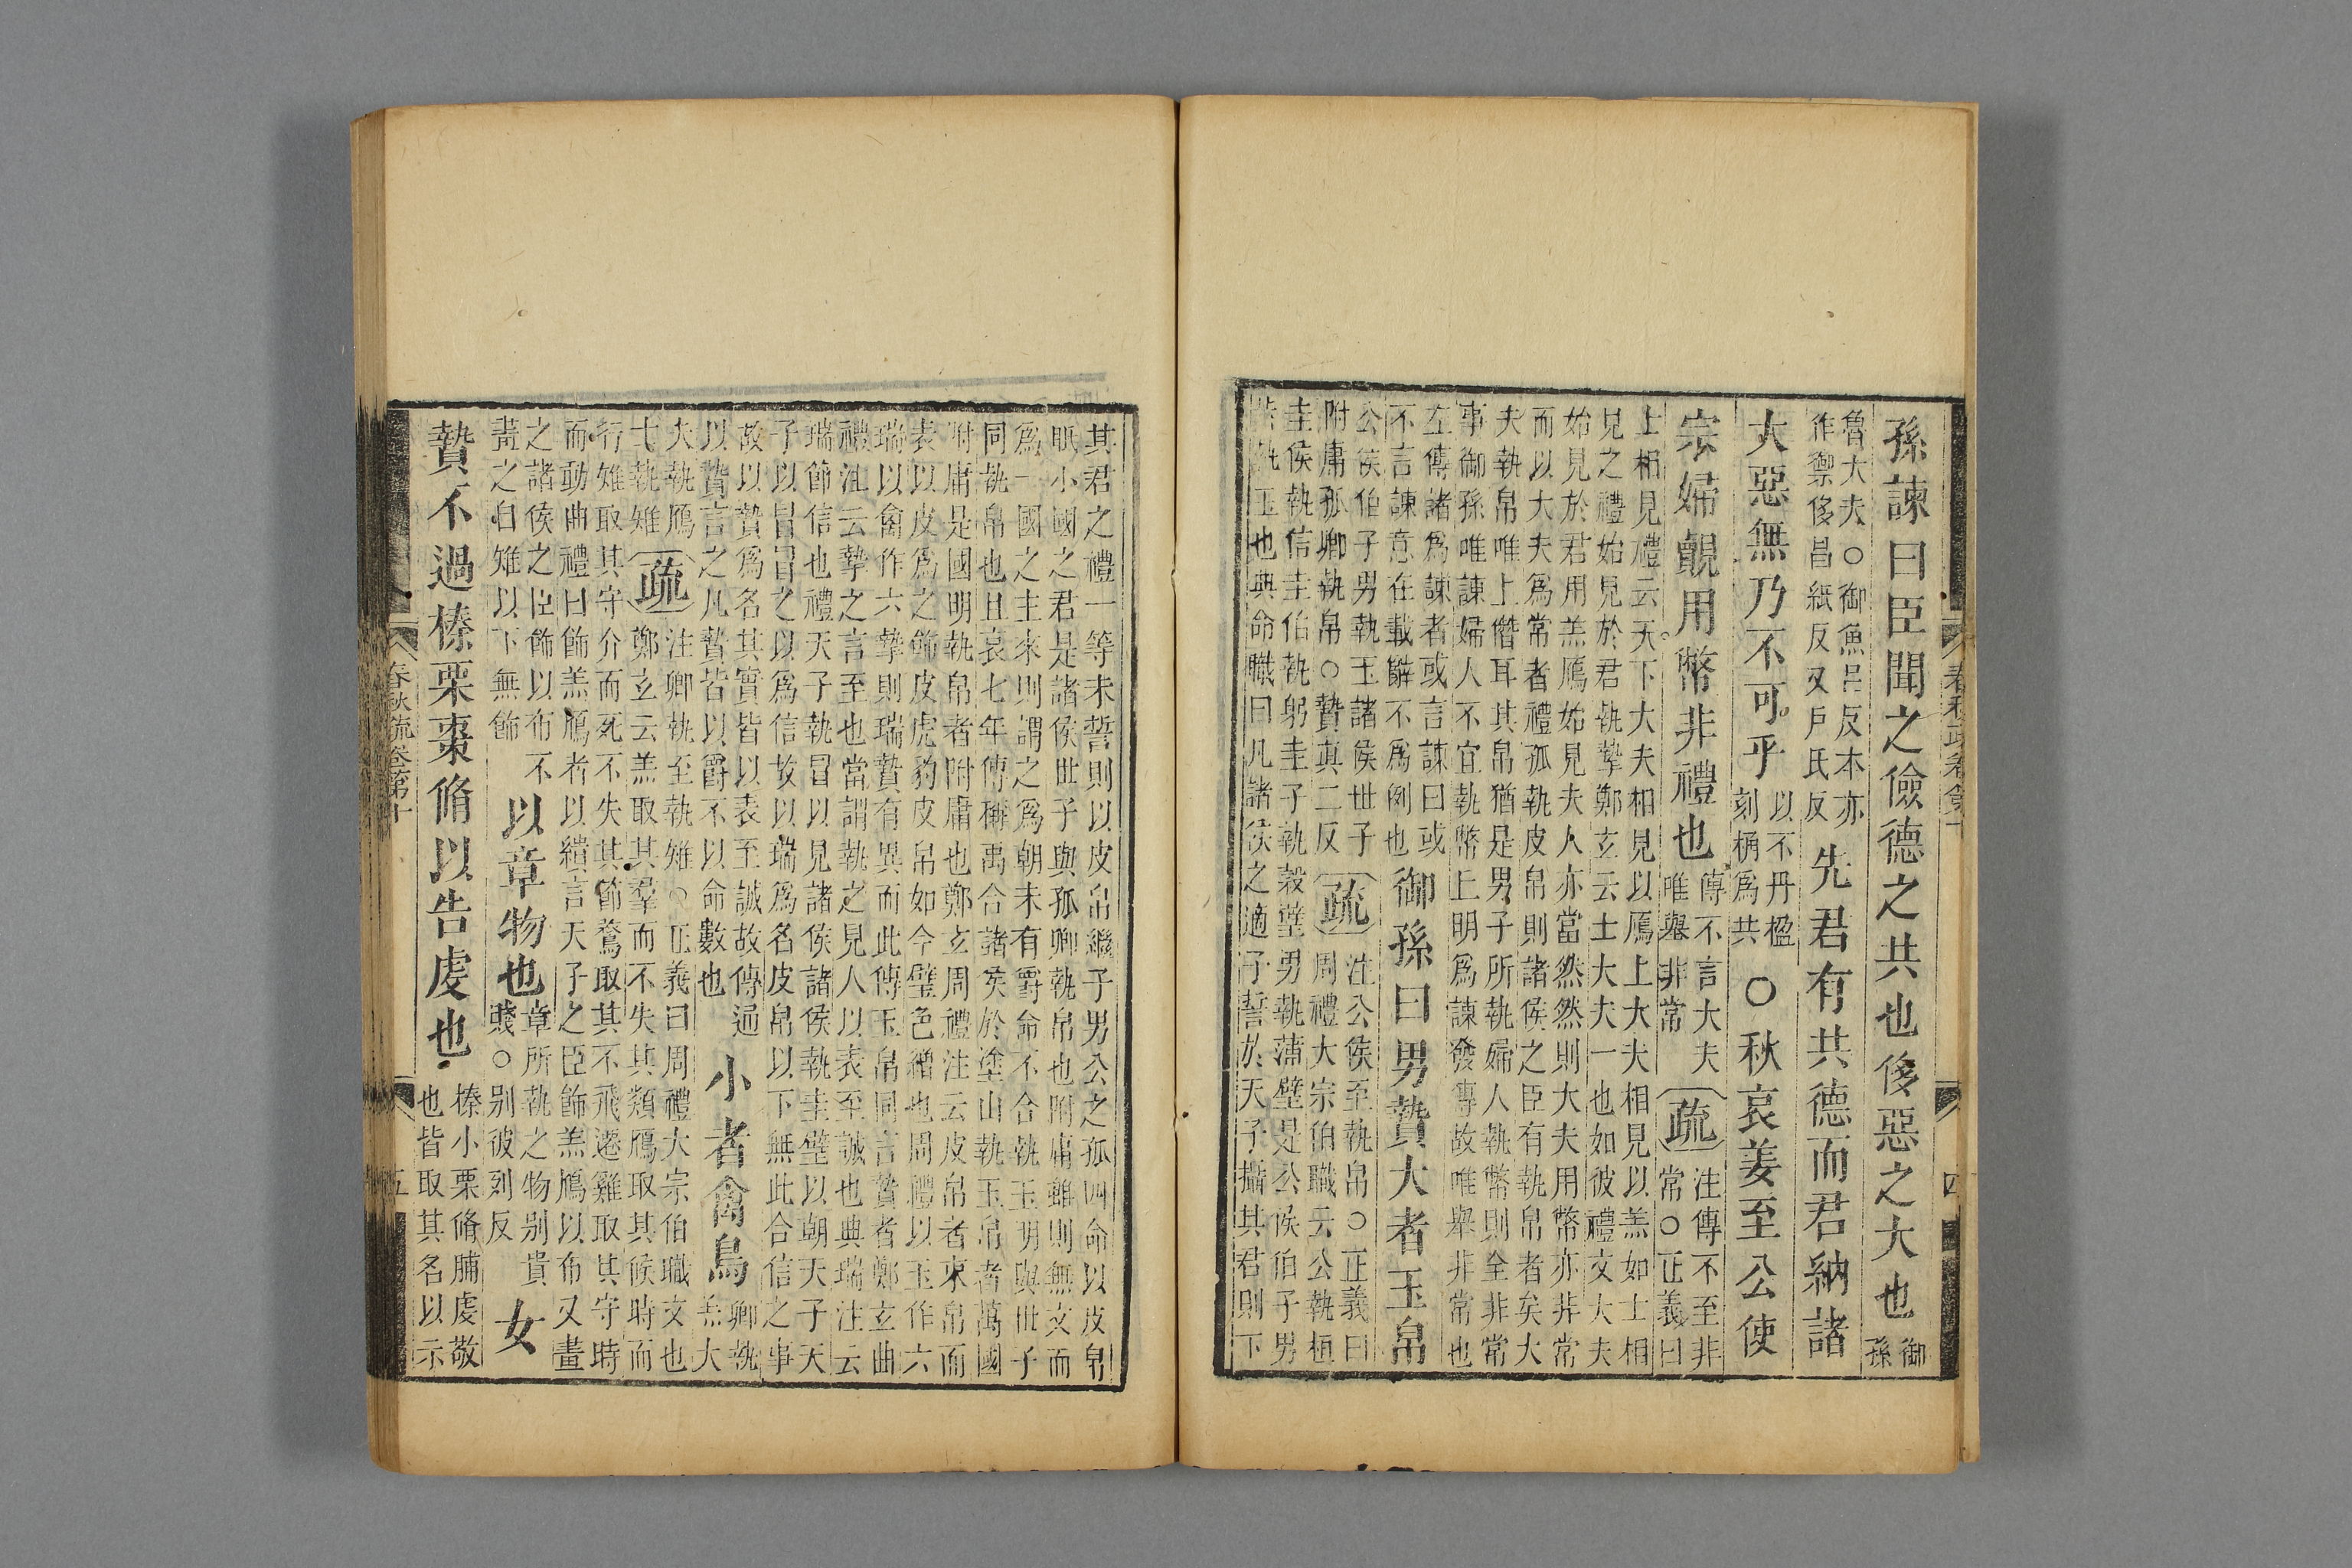 孫諫曰臣聞之儉德之共也侈惡之大也御
孫
魯大夫○御魚呂反本亦
作禦侈昌紙反又戶氏反
先君有共德而君納諸
大惡無乃不可乎
以不丹楹
刻桷爲共
○秋哀姜至公使
宗婦覿用幣非禮也
傳不言大夫
唯舉非常
疏
注傳不至非
常○正義曰
士相見禮云天下大夫相見以鴈上大夫相見以羔如士相
見之禮始見於君執摯鄭玄云士大夫一也如彼禮文大夫
始見於君用羔鴈始見夫人亦當然然則大夫用幣亦非常
而以大夫爲常者禮孤執皮帛則諸侯之臣有執帛者矣大
夫執帛唯上僭耳其帛猶是男子所執婦人執幣則全非常
事御孫唯諫婦人不宜執幣上明爲諫發傳故唯舉非常也
左傳諸爲諫者或言諫曰或
不言諫意在載辭不爲例也
御孫曰男贄大者玉帛
公侯伯子男執玉諸侯世子
附庸孤卿執帛○贄真二反
疏
注公侯至執帛○正義曰
周禮大宗伯職云公執桓
圭侯執信圭伯執躬圭子執穀璧男執蒲璧是公侯伯子男
皆執玉也典命職曰凡諸侯之適子誓於天子攝其君則下
其君之禮一等未誓則以皮帛繼子男公之孤四命以皮帛
眂小國之君是諸侯世子與孤卿執帛也附庸雖則無文而
爲一國之主來則謂之爲朝未有爵命不合執玉明與世子
同執帛也且哀七年傳稱禹合諸侯於塗山執玉帛者萬國
附庸是國明執帛者附庸也鄭玄周禮注云皮帛者束帛而
表以皮爲之飾皮虎豹皮帛如今璧色繒也周禮以玉作六
瑞以禽作六摯則瑞贄有異而此傳玉帛同言贄者鄭玄曲
禮注云摯之言至也當謂執之見人以表至誠也典瑞注云
瑞節信也禮天子執冒以見諸侯諸侯執圭璧以朝天子天
子以冒冒之以爲信故以瑞爲名皮帛以下無此合信之事
故以贄爲名其實皆以表至誠故傳通
以贄言之凡贄皆以爵不以命數也
小者禽鳥
卿執
羔大
夫執鴈
士執雉
疏
注卿執至執雉○正義曰周禮大宗伯職文也
鄭玄云羔取其羣而不失其類鴈取其候時而
行雉取其守介而死不失其節鶩取其不飛遷雞取其守時
而動曲禮曰飾羔鴈者以繢言天子之臣飾羔鴈以布又畫
之諸侯之臣飾以布不
畫之自雉以下無飾
以章物也
章所執之物别貴
賤○别彼列反
女
贄不過榛栗棗脩以告虔也
榛小栗脩脯虔敬
也皆取其名以示
春秋疏卷第十
五